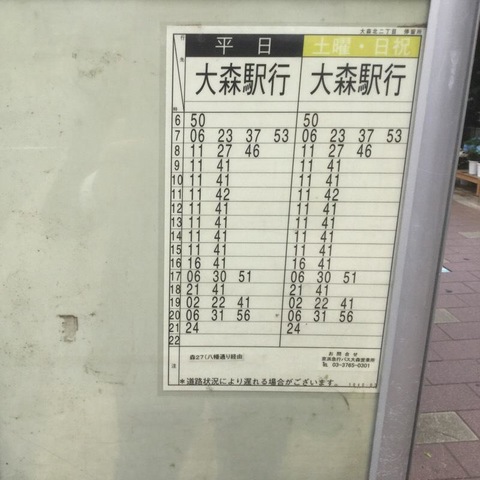 大森北二丁目 停留所
平日 土曜・日祝
大森駅行 大森駅行
時
6 50 50
7 06 23 37 53 06 23 37 53
8 11 27 46 11 27 46
9 11 41 11 41
10 11 41 11 41
11 11 42 11 42
12 11 41 11 41
13 11 41 11 41
14 11 41 11 41
15 11 41 11 41
16 16 41 16 41
17 06 30 51 06 30 51
18 21 41 21 41
19 02 22 41 02 22 41
20 06 31 56 06 31 56
21 24 24
22
森27(八幡通り経由
お問合せ
京浜急行バス大森営業所
℡ 03-3765-0301
注
*道路状況により遅れる場合がございます。